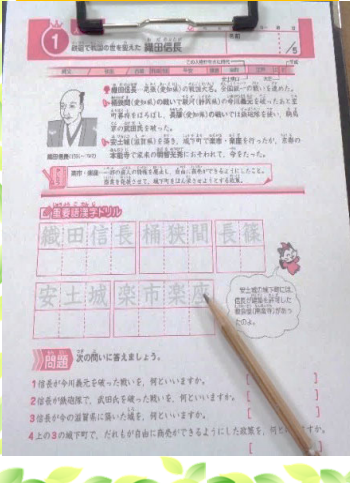 1
鉄砲で戦国の世を変えた 織田信長
/5
織田信長…尾張(愛知県)の戦国大名。全国統一の戦いを進めた。
桶狭間(愛知県)の戦いで駿河(静岡県)の今川義元を破ったあと室
町幕府をほろぼし、長篠(愛知県)の戦いでは鉄砲隊を使い、騎馬
軍の武田氏を破った。
安土城(滋賀県)を築き、城下町で楽市・楽座を行ったが、京都の
本能寺で家来の明智光秀におそわれて、命をたった。
織田信長(1534〜1582)
楽市・楽座
重要語漢字ドリル
織田信長 桶狭間 長篠
安土城 楽市楽座
安土城の城下町には、
信長が建築を許可した
教会堂(南蛮寺)があっ
たのよ。
問題 次の問いに答えましょう。
1 信長が今川義元を破った戦いを、何といいますか。
2 信長が鉄砲隊で、武田氏を破った戦いを、何といいますか。
3 信長が今の滋賀県に築いた城を、何といいますか。
4 上の3の城下町で、だれもが自由に商売ができるようにした政策を、何と